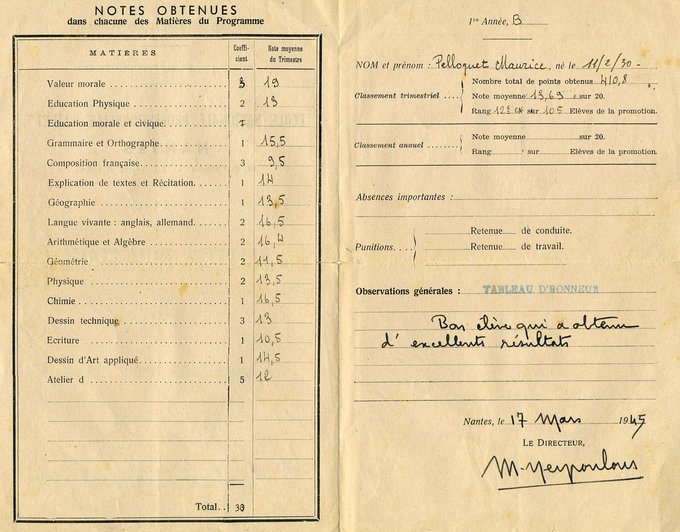 NOTES OBTENUES
dans chacune des Matières du Programme
MATIÈRES Coeffi-cient Note moyenne du Trimestre
Valeur morale 3 19
Education Physique 2 13
Education morale et civique
Grammaire et Orthographe 1 15,5
Composition française 3 9,5
Explication de textes et Récitation 1 14
Géographie 1 13,5
Langue vivante : anglais, allemand. 2 16,5
Arithmétique et Algèbre 2 16,4
Géométrie 2 11,5
Physique 2 13,5
Chimie 1 16,5
Dessin technique 3 13
Ecriture 1 10,5
Dessin d'Art appliqué 1 14,5
Atelier d 5 12
Total 30
1re Année, B
NOM et prénom : Pelloquet Maurice, né le 11/2/30
Classement trimestriel
Nombre total de points obtenus 410,8
Note moyenne 13,69 sur 20.
Rang 12e sur 105 Elèves de la promotion.
Classement annuel
Note moyenne sur 20.
Rang " sur Elèves de la promotion.
Absences importantes :
Punitions
Retenue de conduite.
Retenue de travail.
Observations générales : TABLEAU D'HONNEUR
Bon élève qui a obtenu
d'excellents résultats
Nantes, le 17 Mars 1945
LE DIRECTEUR,